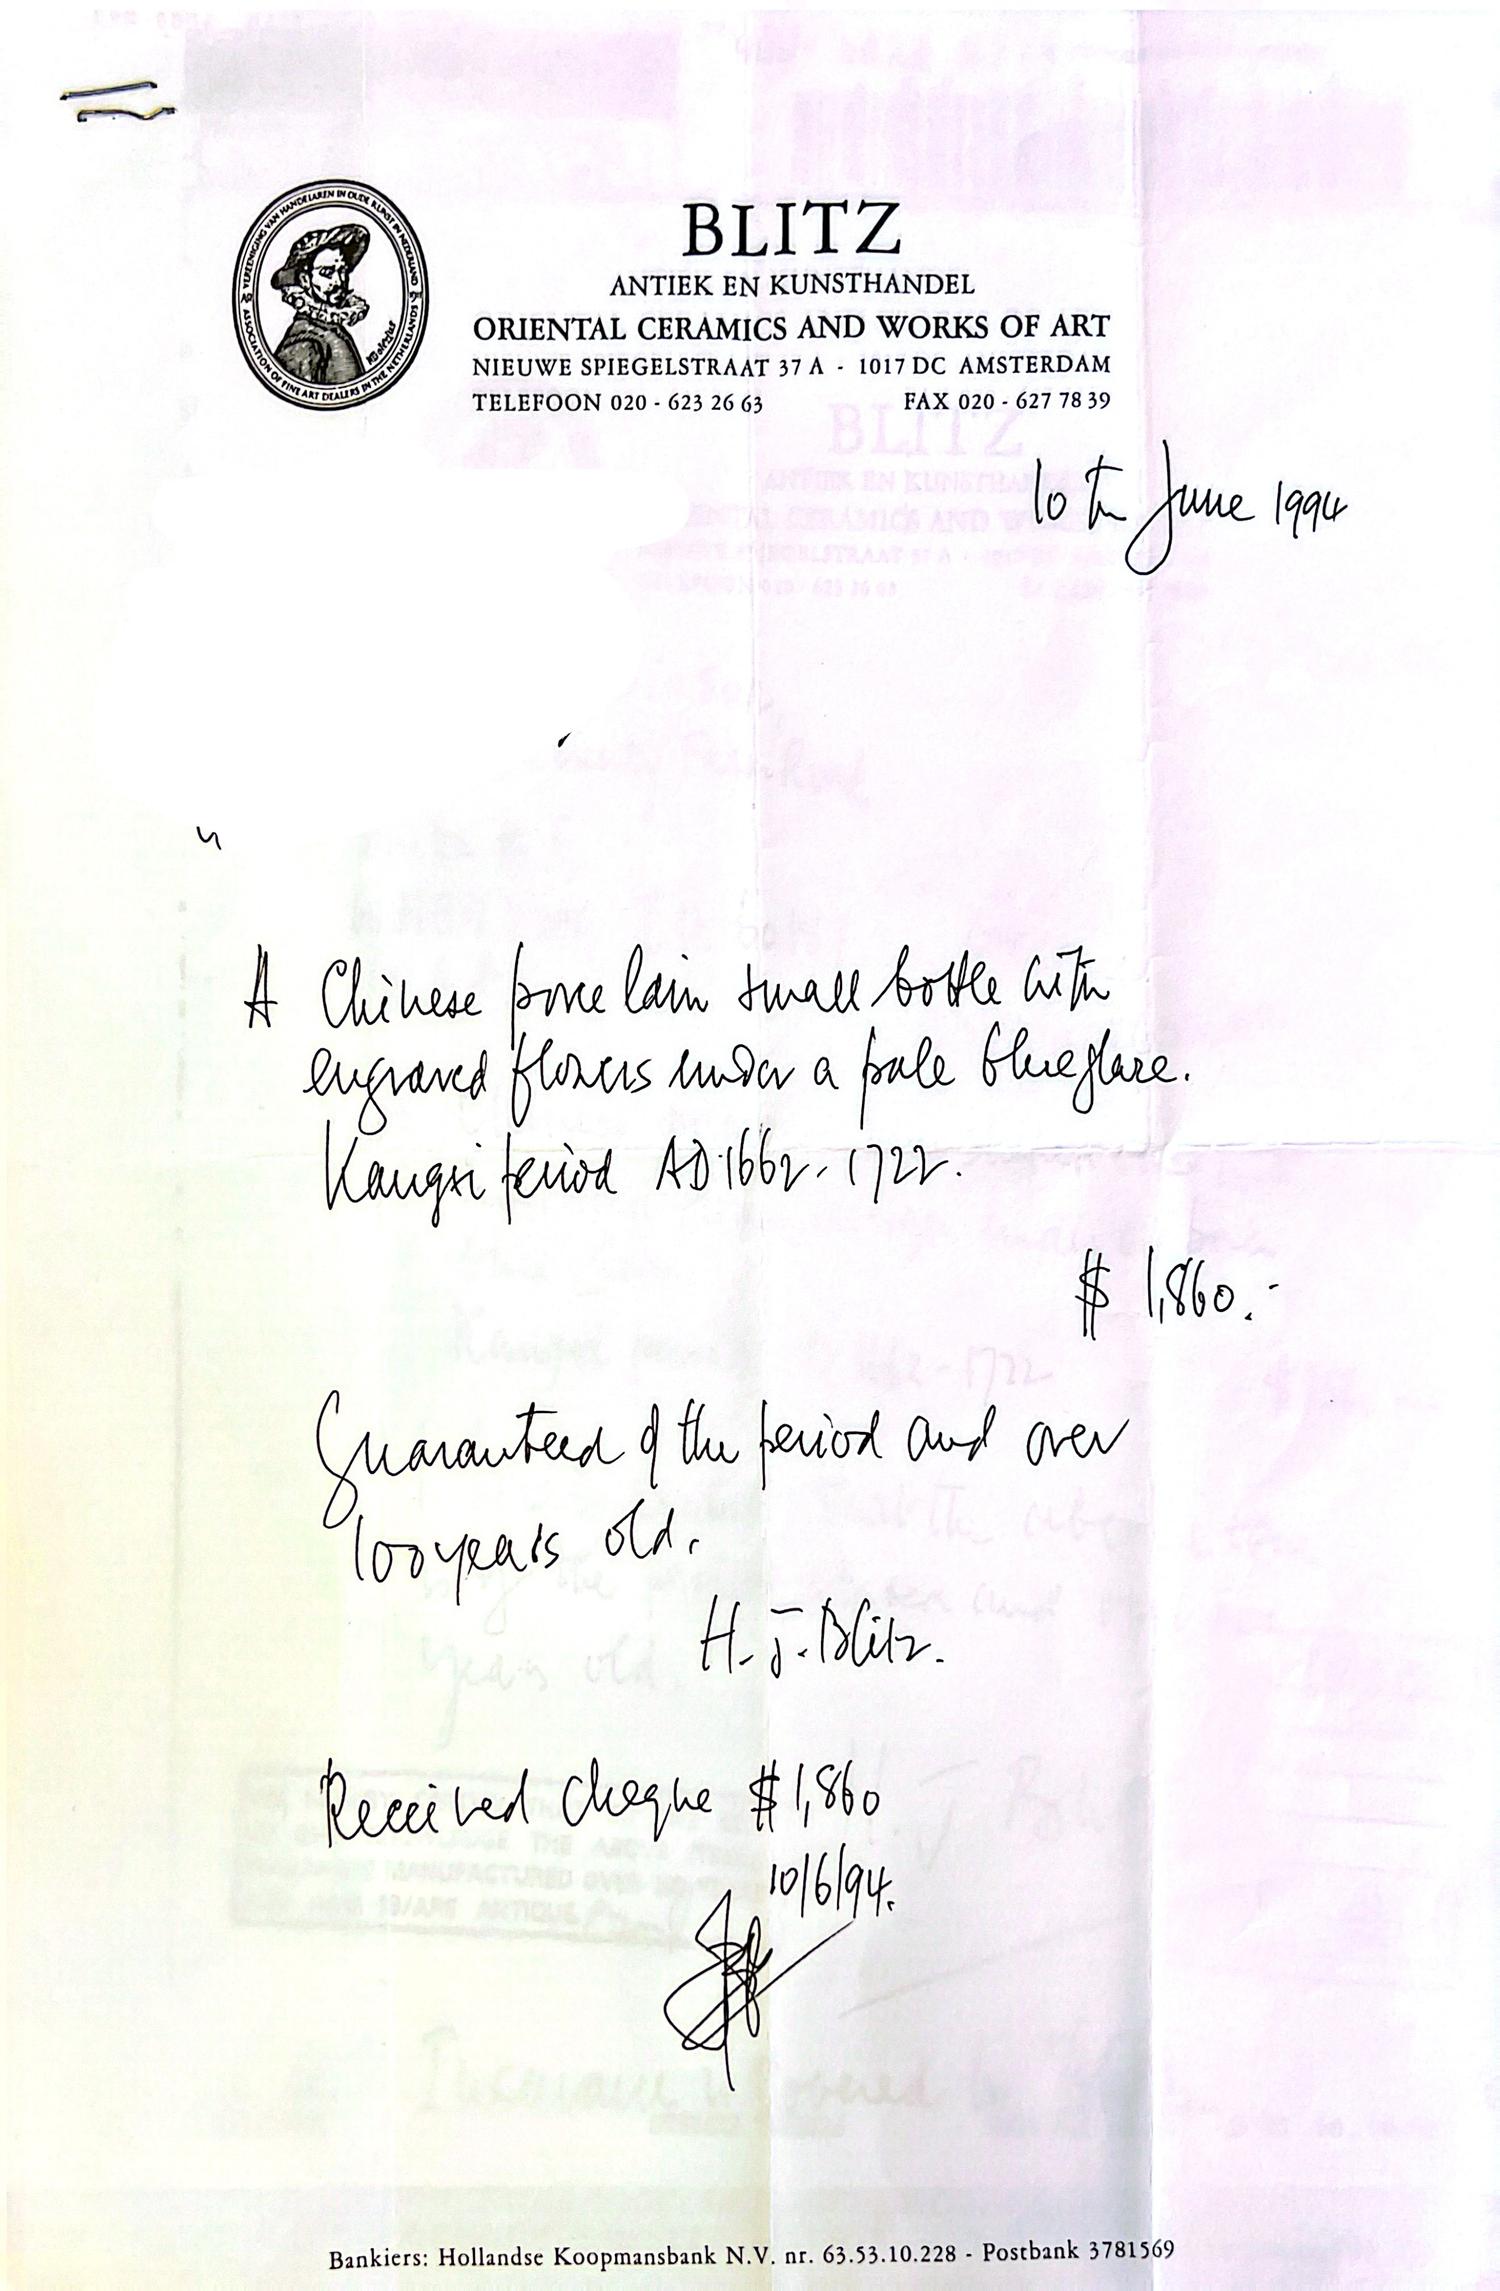 VEREENIGING VAN HANDELAREN IN OUDE KUNST IN NEDERLAND
ASSOCIATION OF FINE ART DEALERS IN THE NETHERLANDS
BLITZ
ANTIEK EN KUNSTHANDEL
ORIENTAL CERAMICS AND WORKS OF ART
NIEUWE SPIEGELSTRAAT 37 A - 1017 DC AMSTERDAM
TELEFOON 020 - 623 26 63 FAX 020 - 627 78 39
10th June 1994
A Chinese porcelain small bottle with
engraved flowers under a pale blue glaze.
Kangxi period AD 1662-1722.
$ 1,860.-
Guaranteed of the period and over
100 years old.
H. J. Blitz.
Received cheque $ 1,860
10/6/94.
Bankiers: Hollandse Koopmansbank N.V. nr. 63.53.10.228 - Postbank 3781569